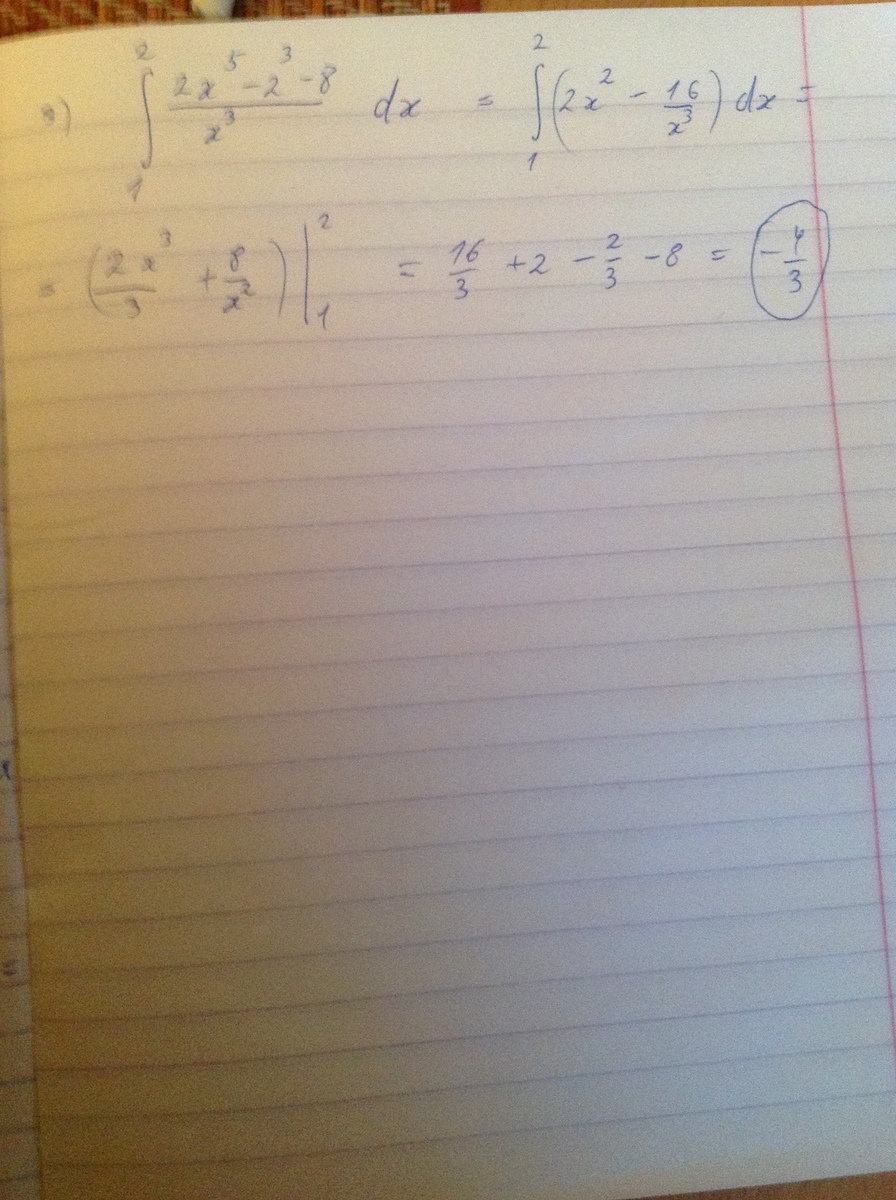 э) ∫₁² (2x⁵ - 2³ - 8)/x³ dx = ∫₁² (2x² - 16/x³) dx =
= (2x³/3 + 8/x²) |₁² = 16/3 + 2 - 2/3 - 8 = -4/3